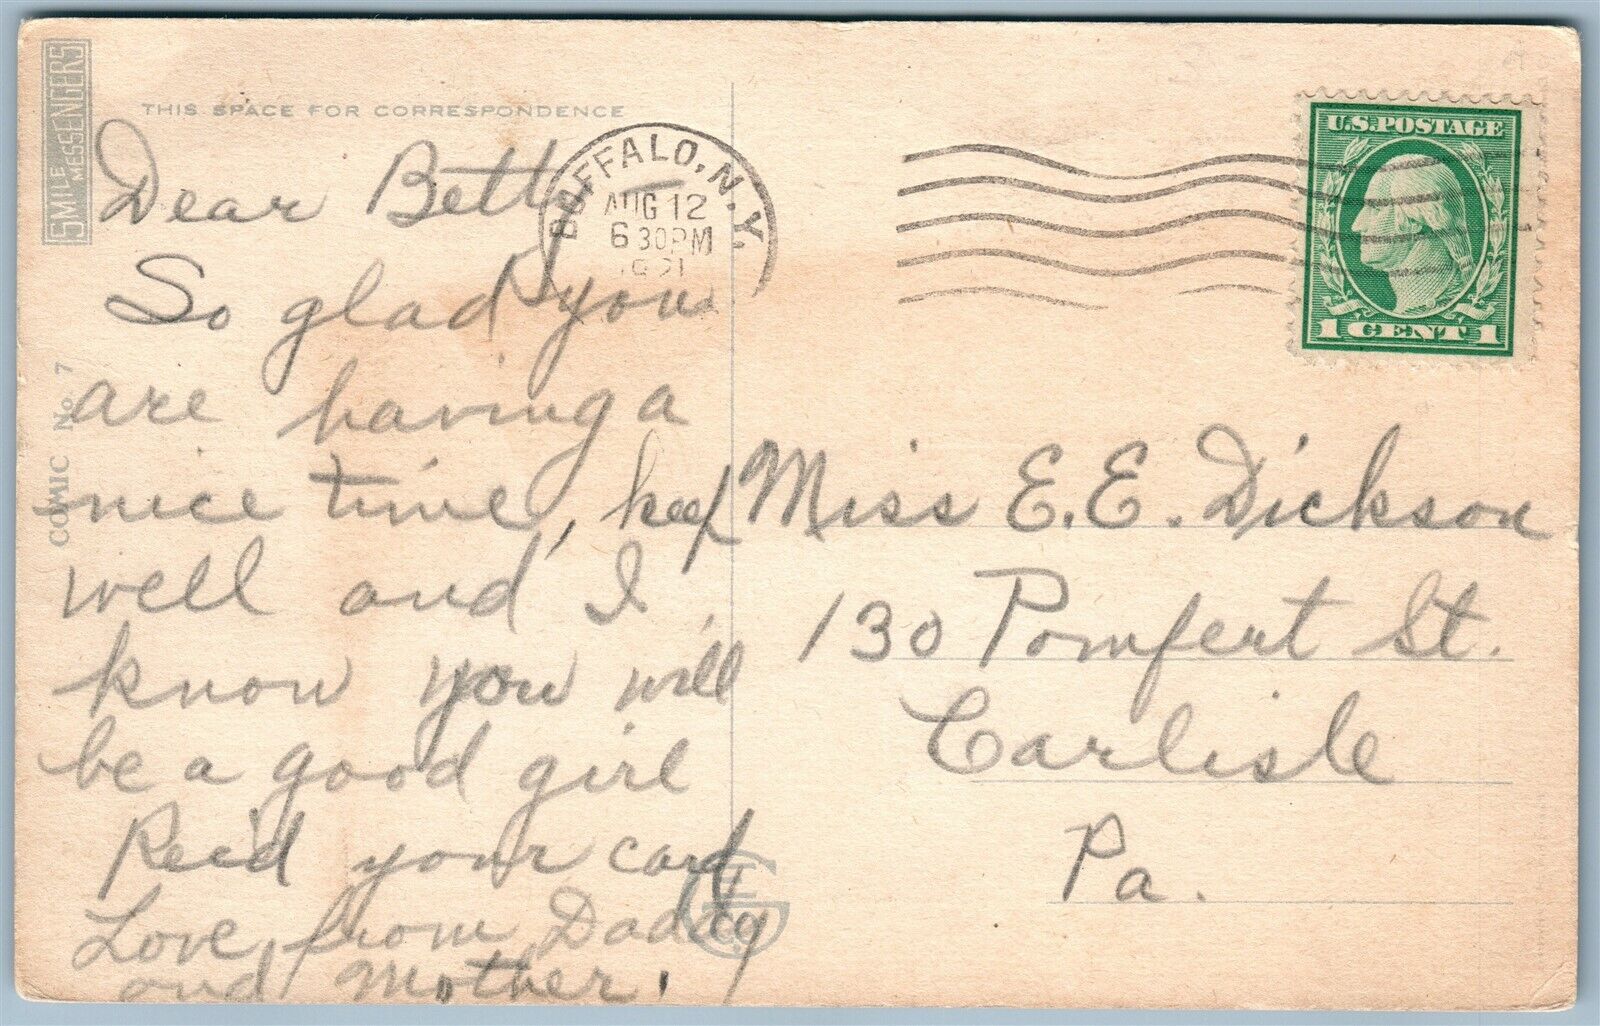 SMILE
MESSENGERS
THIS SPACE FOR CORRESPONDENCE
COMIC No. 7
Dear Betty
So glad you
are having a
nice time, keep
well and I
know you will
be a good girl
Rec'd your card
Love from Daddy
and Mother.
BUFFALO, N.Y.
AUG 12
6 30 PM
U.S. POSTAGE
1 CENT 1
Miss E. E. Dickson
130 Pomfert St.
Carlisle
Pa.